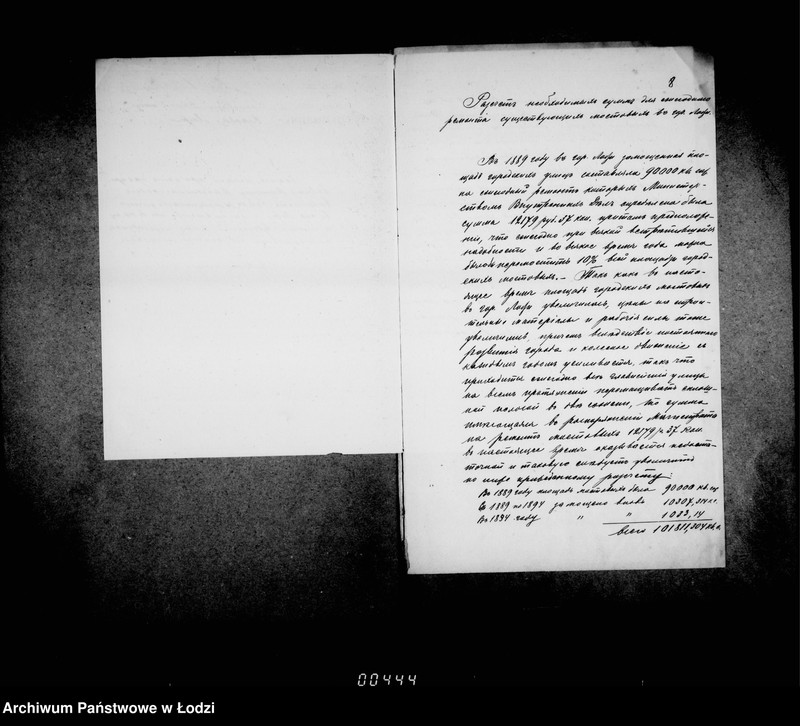 8
Разсчетъ необходимыхъ суммъ для ежегоднаго
ремонта существующихъ мостовыхъ въ гор. Лодзи.
Въ 1889 году въ гор. Лодзи замощенная пло-
щадь городскихъ улицъ составляла 90000 кв. саж.
на ежегодный ремонтъ которыхъ Министер-
ствомъ Внутреннихъ Дѣлъ определена была
сумма 12179 руб. 37 коп. притомъ предположе-
ніи, что ежегодно при всякой встрѣтившейся
надобности и во всякое время года можно
было перемостить 10% всей площади город-
скихъ мостовыхъ. - Такъ какъ въ насто-
ящее время площадь городскихъ мостовыхъ
въ гор. Лодзи увеличилась, цены на строи-
тельные матеріалы и рабочія силы тоже
увеличились, причемъ вслѣдствіе постояннаго
развитія города и колесное движеніе съ
каждымъ годомъ усиливается, такъ что
приходится ежегодно всѣ главнѣйшія улицы
на всемъ протяженіи перемащивать сплош-
ной полосой въ двѣ сажени, то сумма
въ распоряженіи Магистрата
на ремонтъ мостовыхъ 12179 р. 37 коп.
въ настоящее время оказывается недоста-
точной и таковую слѣдуетъ увеличить
по ниже приведенному разсчету:
Въ 1889 году площадь мостовыхъ была 90000 кв. саж.
Съ 1889 по 1894 замощено вновь 10307,314 кв.
Въ 1894 году " " 1023,14
Всего 101811,304 кв. с.
00444
Archiwum Państwowe w Łodzi